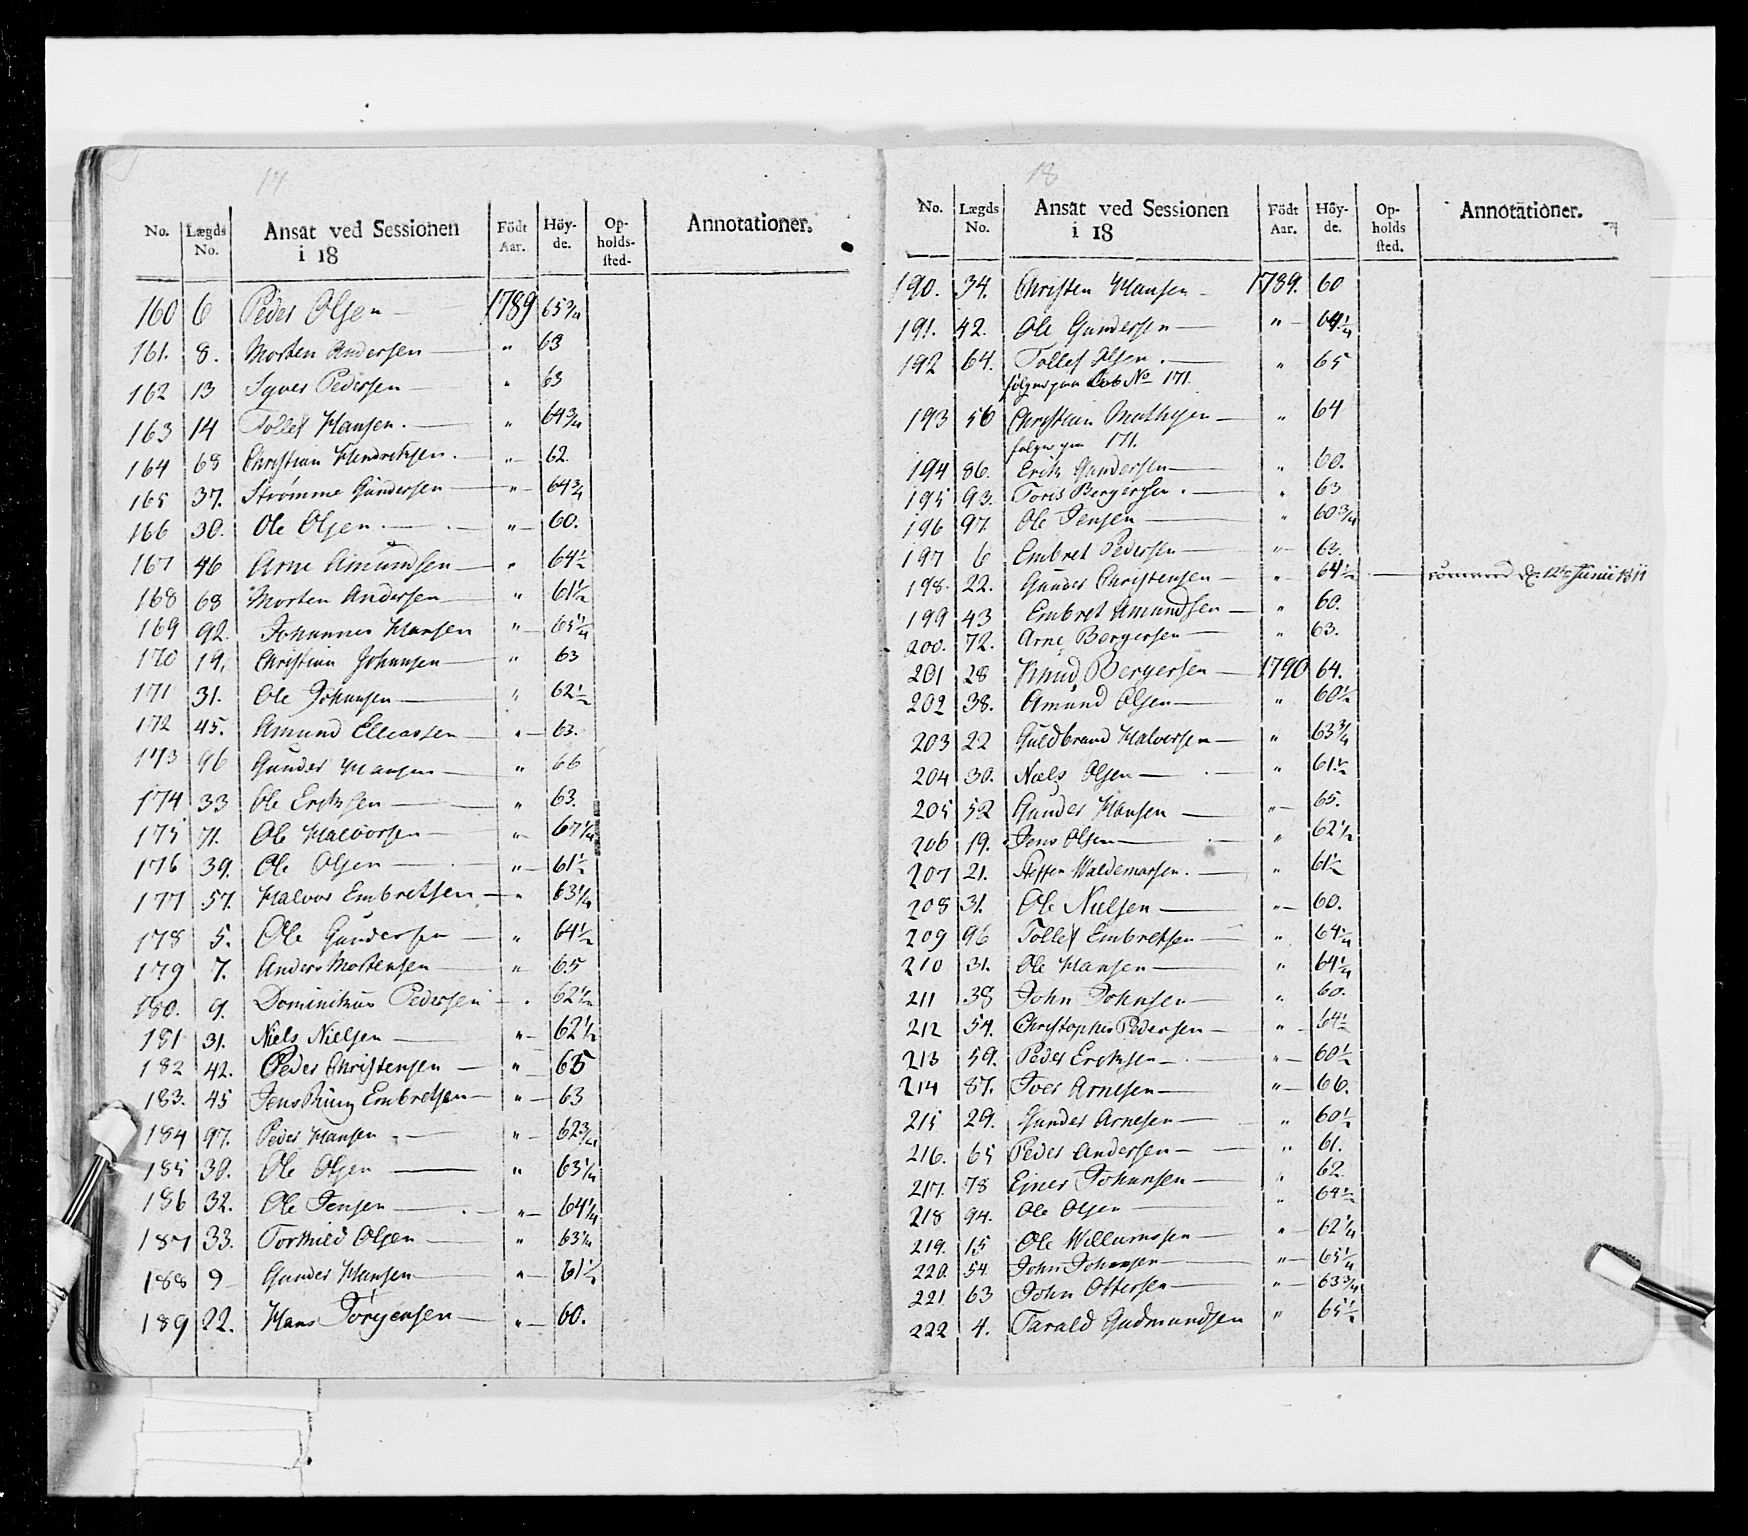 14
No. Lægds No. Ansat ved Sessionen i 18 Födt Aar. Höy-de. Op-holds-sted- Annotationer.
160 6 Peder Olsen — 1789 65 3/4
161. 8. Morten Andersen — " 63
162 13 Syver Pedersen — " 63
163 14 Tollef Hansen. — " 64 3/4
164 68 Christian Hendrichsen. — " 62.
165 37. Strømme Gundersen — " 64 3/4
166 30. Ole Olsen. — " 60.
167 46 Arne Amundsen — " 64 1/2
168 68 Morten Andersen — " 61 1/2
169 92. Johannes Hansen " 65 1/4
170 19. Christian Johansen — " 63
171 31. Ole Johansen — " 62 1/2
172 45. Amund Elleassen — " 63.
173 96 Gunder Hansen — " 66
174 33 Ole Erichsen — " 63.
175 71. Ole Halvorsen — " 67 1/4
176 39. Ole Olsen — " 61 1/2
177 57. Halvor Embretsen — " 63 1/4
178 5. Ole Gundersen — " 64 1/2
179 7. Anders Mortensen — " 65
180. 9. Dominikus Pedersen — " 62 1/2
181 31. Niels Nielsen — " 62 1/2
182 42. Peder Christensen — " 65
183. 45 Jens Embretsen — " 63
184 97. Peder Hansen — " 62 3/4
185 30. Ole Olsen — " 63 1/4
186 32. Ole Jensen — " 64 1/4
187 33. Torkild Olsen — " 63 1/4
188 9 Gunder Hansen — " 61 1/2
189 22. Hans Jörgensen — " 60.
18
No. Lægds No. Ansat ved Sessionen i 18 Födt Aar. Höy-de. Op-holds sted. Annotationer.
190. 34. Christen Hansen — 1789. 60
191. 42. Ole Gundersen — " 64 1/4
192 64. Tollef Olsen. — " 65
følger paa No 171.
193 56 Christian Mathisen — " 64
følger paa 171.
194 86. Erich Gundersen — " 60.
195 93. Toris Bergersen. — " 63
196 97. Ole Jensen — " 60 3/4
197 6 Embret Pedersen — " 63.
198. 22. Gunder Christensen — " 64 1/2 — d: 12te Junii 1811
199 43 Embret Amundsen — " 60.
200. 72. Arne Bergersen — " 63.
201 28 Knud Bergersen — 1790 64.
202 38. Amund Olsen — " 60 1/2
203 22 Guldbrand Halversen — " 63 3/4
204 30. Niels Olsen — " 61 1/2
205 52 Gunder Hansen — " 65.
206 19. Jens Olsen — " 62 1/2
207 21. Steffen Waldemarsen. — " 61 1/2
208 31. Ole Nielsen — " 60.
209 96 Tollef Embretsen — " 64 1/4
210 31. Ole Hansen — " 64 1/4
211 38 John Johnsen — " 60.
212 54. Christopher Pedersen — " 64 1/2
213 59. Peder Erichsen — " 60 1/2
214 87. Iver Arnesen — " 66.
215 29. Gunder Arnesen — " 60 1/2
216. 65 Peder Andersen — " 61.
217. 78 Ejner Johansen — " 62
218 94. Ole Olsen — " 64 1/2
219. 15 Ole Willumssen — " 62 1/4
220. 54. John Johansen — " 65 1/4
221 63 John Ottersen — " 63 3/4
222 4. Tarald Gudmundsen " 65 1/2